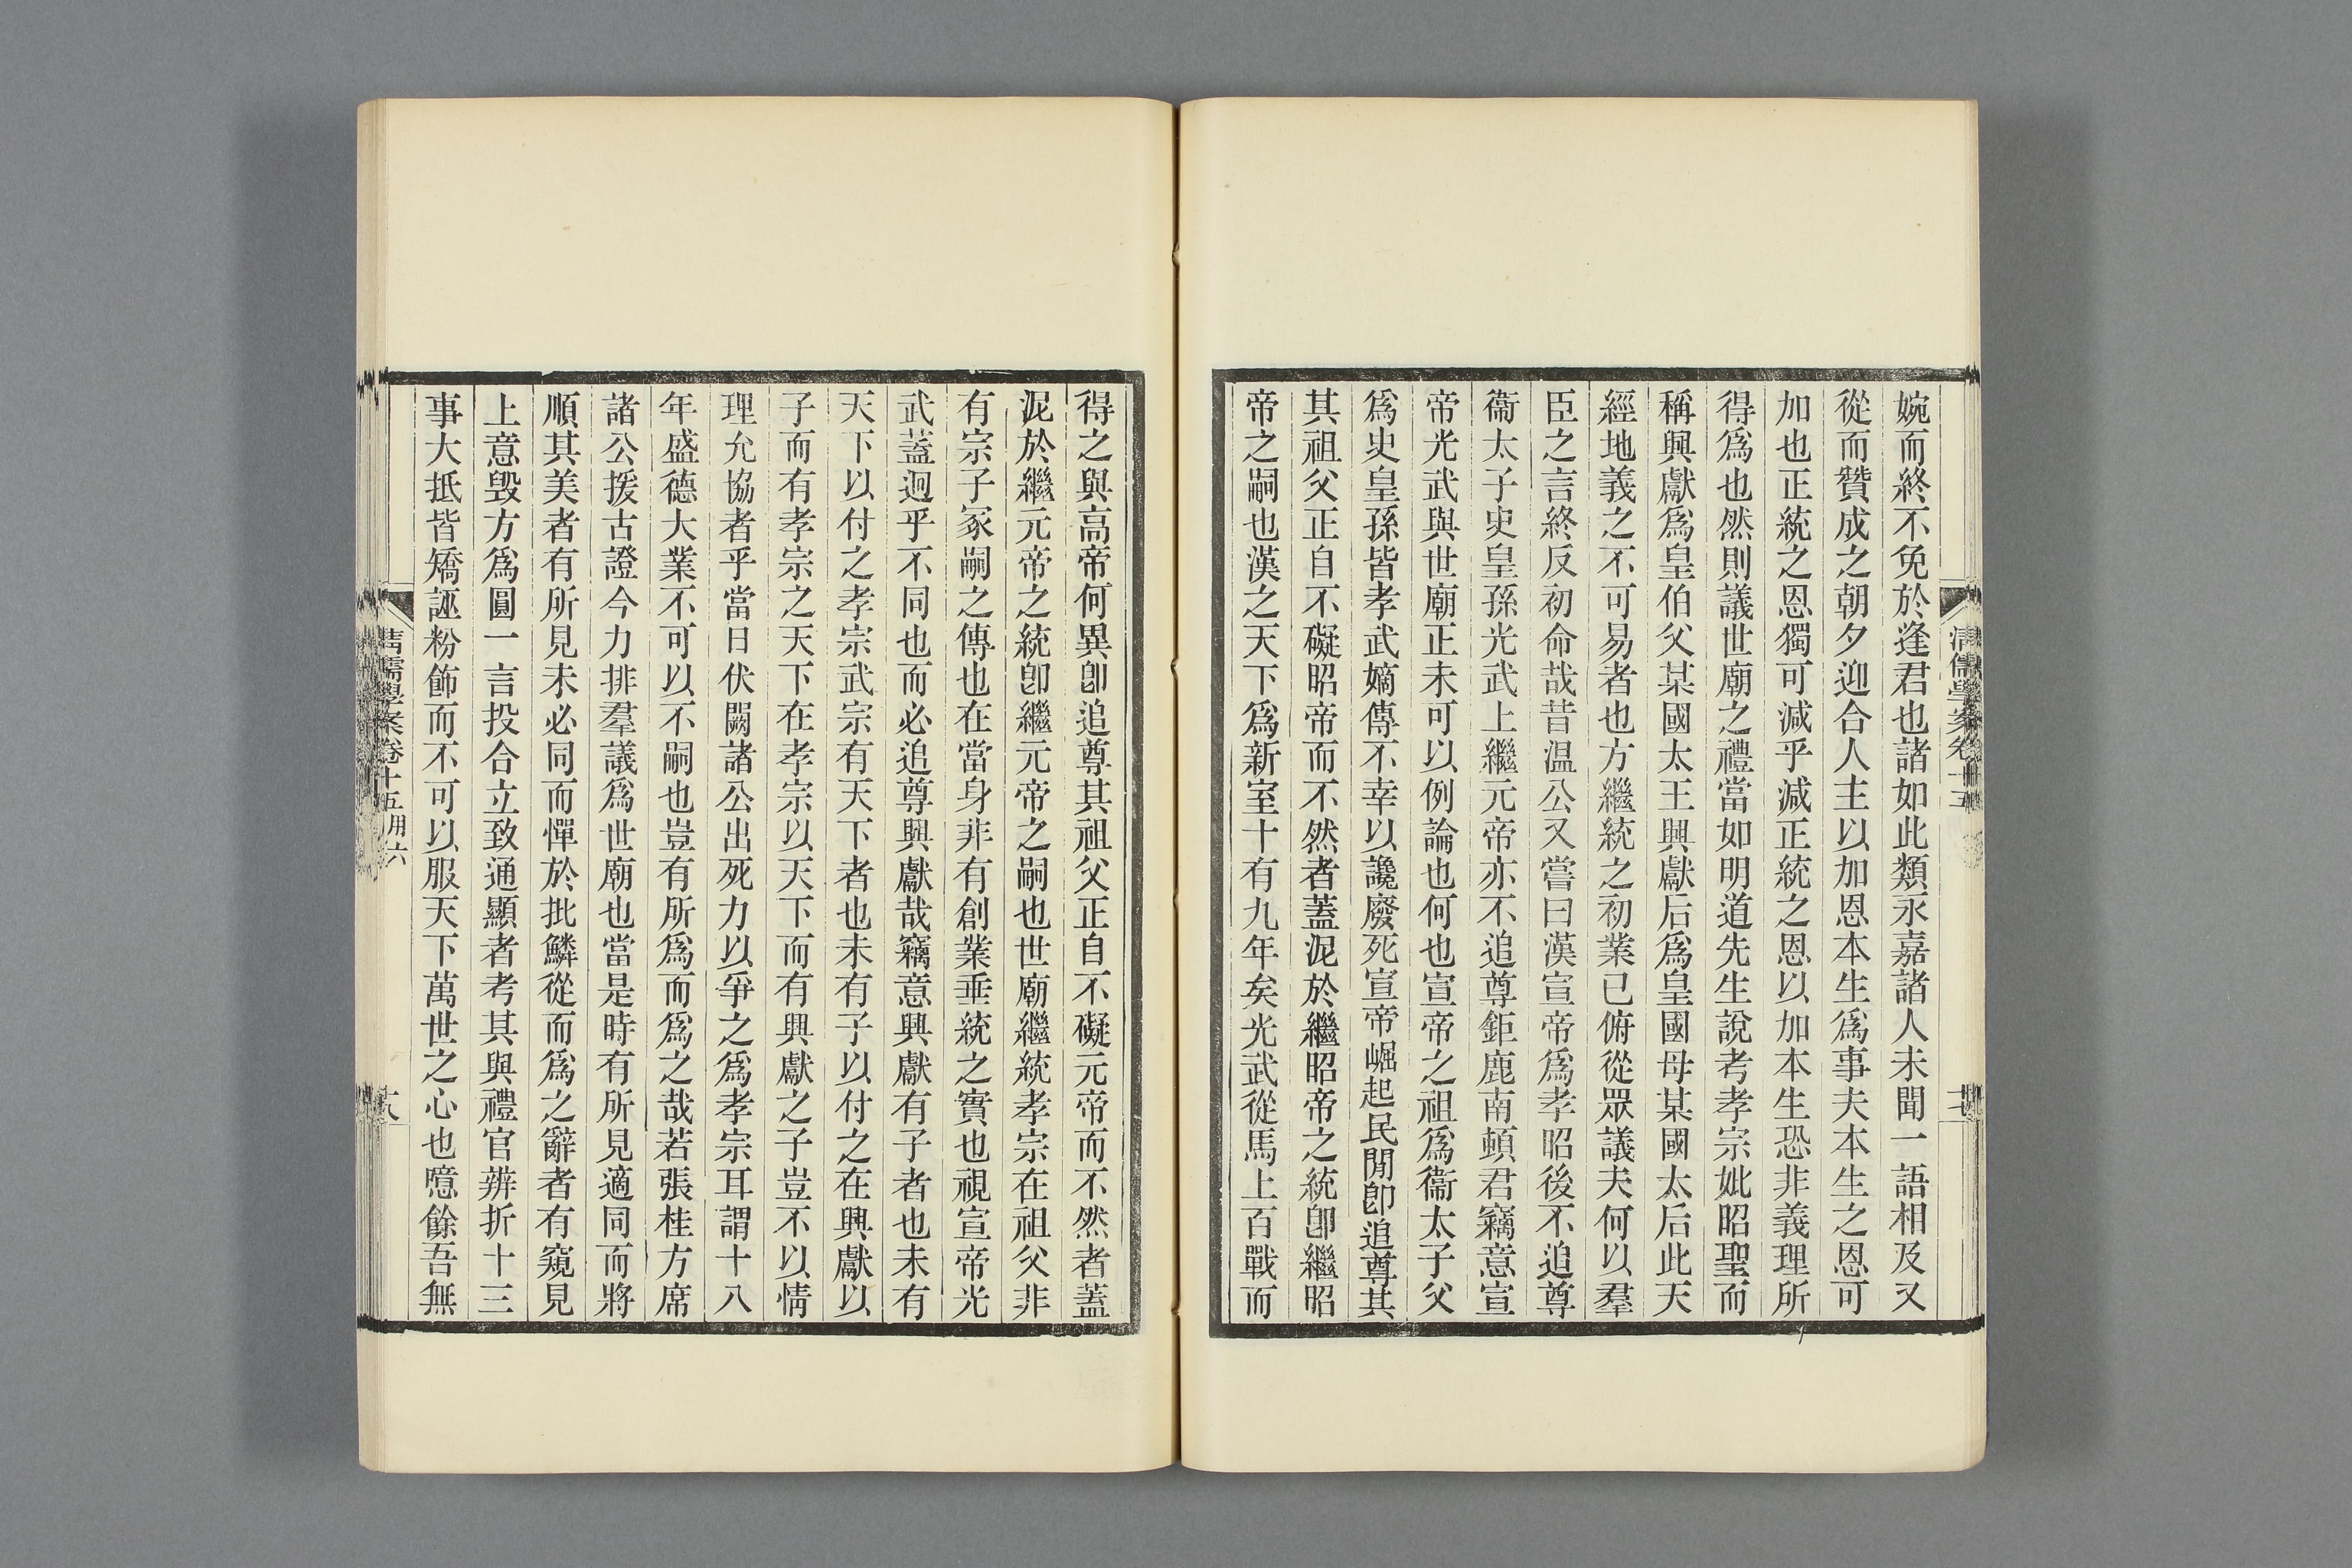 婉而終不免於逢君也諸如此類永嘉諸人未聞一語相及又
從而贊成之朝夕迎合人主以加恩本生爲事夫本生之恩可
加也正統之恩獨可減乎減正統之恩以加本生恐非義理所
得爲也然則議世廟之禮當如明道先生說考孝宗妣昭聖而
稱興獻爲皇伯父某國太王興獻后爲皇國母某國太后此天
經地義之不可易者也方繼統之初業已俯從眾議夫何以羣
臣之言終反初命哉昔温公又嘗曰漢宣帝爲孝昭後不追尊
衞太子史皇孫光武上繼元帝亦不追尊鉅鹿南頓君竊意宣
帝光武與世廟正未可以例論也何也宣帝之祖爲衞太子父
爲史皇孫皆孝武嫡傳不幸以讒廢死宣帝崛起民閒卽追尊其
其祖父正自不礙昭帝而不然者蓋泥於繼昭帝之統卽繼昭
帝之嗣也漢之天下爲新室十有九年矣光武從馬上百戰而
得之與高帝何異卽追尊其祖父正自不礙元帝而不然者蓋
泥於繼元帝之統卽繼元帝之嗣也世廟繼統孝宗在祖父非
有宗子冢嗣之傳也在當身非有創業垂統之實也視宣帝光
武蓋迥乎不同也而必追尊興獻哉竊意興獻有子者也未有
天下以付之孝宗武宗有天下者也未有子以付之在興獻以
子而有孝宗之天下在孝宗以天下而有興獻之子豈不以情
理允協者乎當日伏闕諸公出死力以爭之爲孝宗耳謂十八
年盛德大業不可以不嗣也豈有所爲而爲之哉若張桂方席
諸公援古證今力排羣議爲世廟也當是時有所見適同而將
順其美者有所見未必同而憚於批鱗從而爲之辭者有窺見
上意毁方爲圓一言投合立致通顯者考其與禮官辨折十三
事大抵皆矯誣粉飾而不可以服天下萬世之心也噫餘吾無
清儒學案卷十五用六
十八